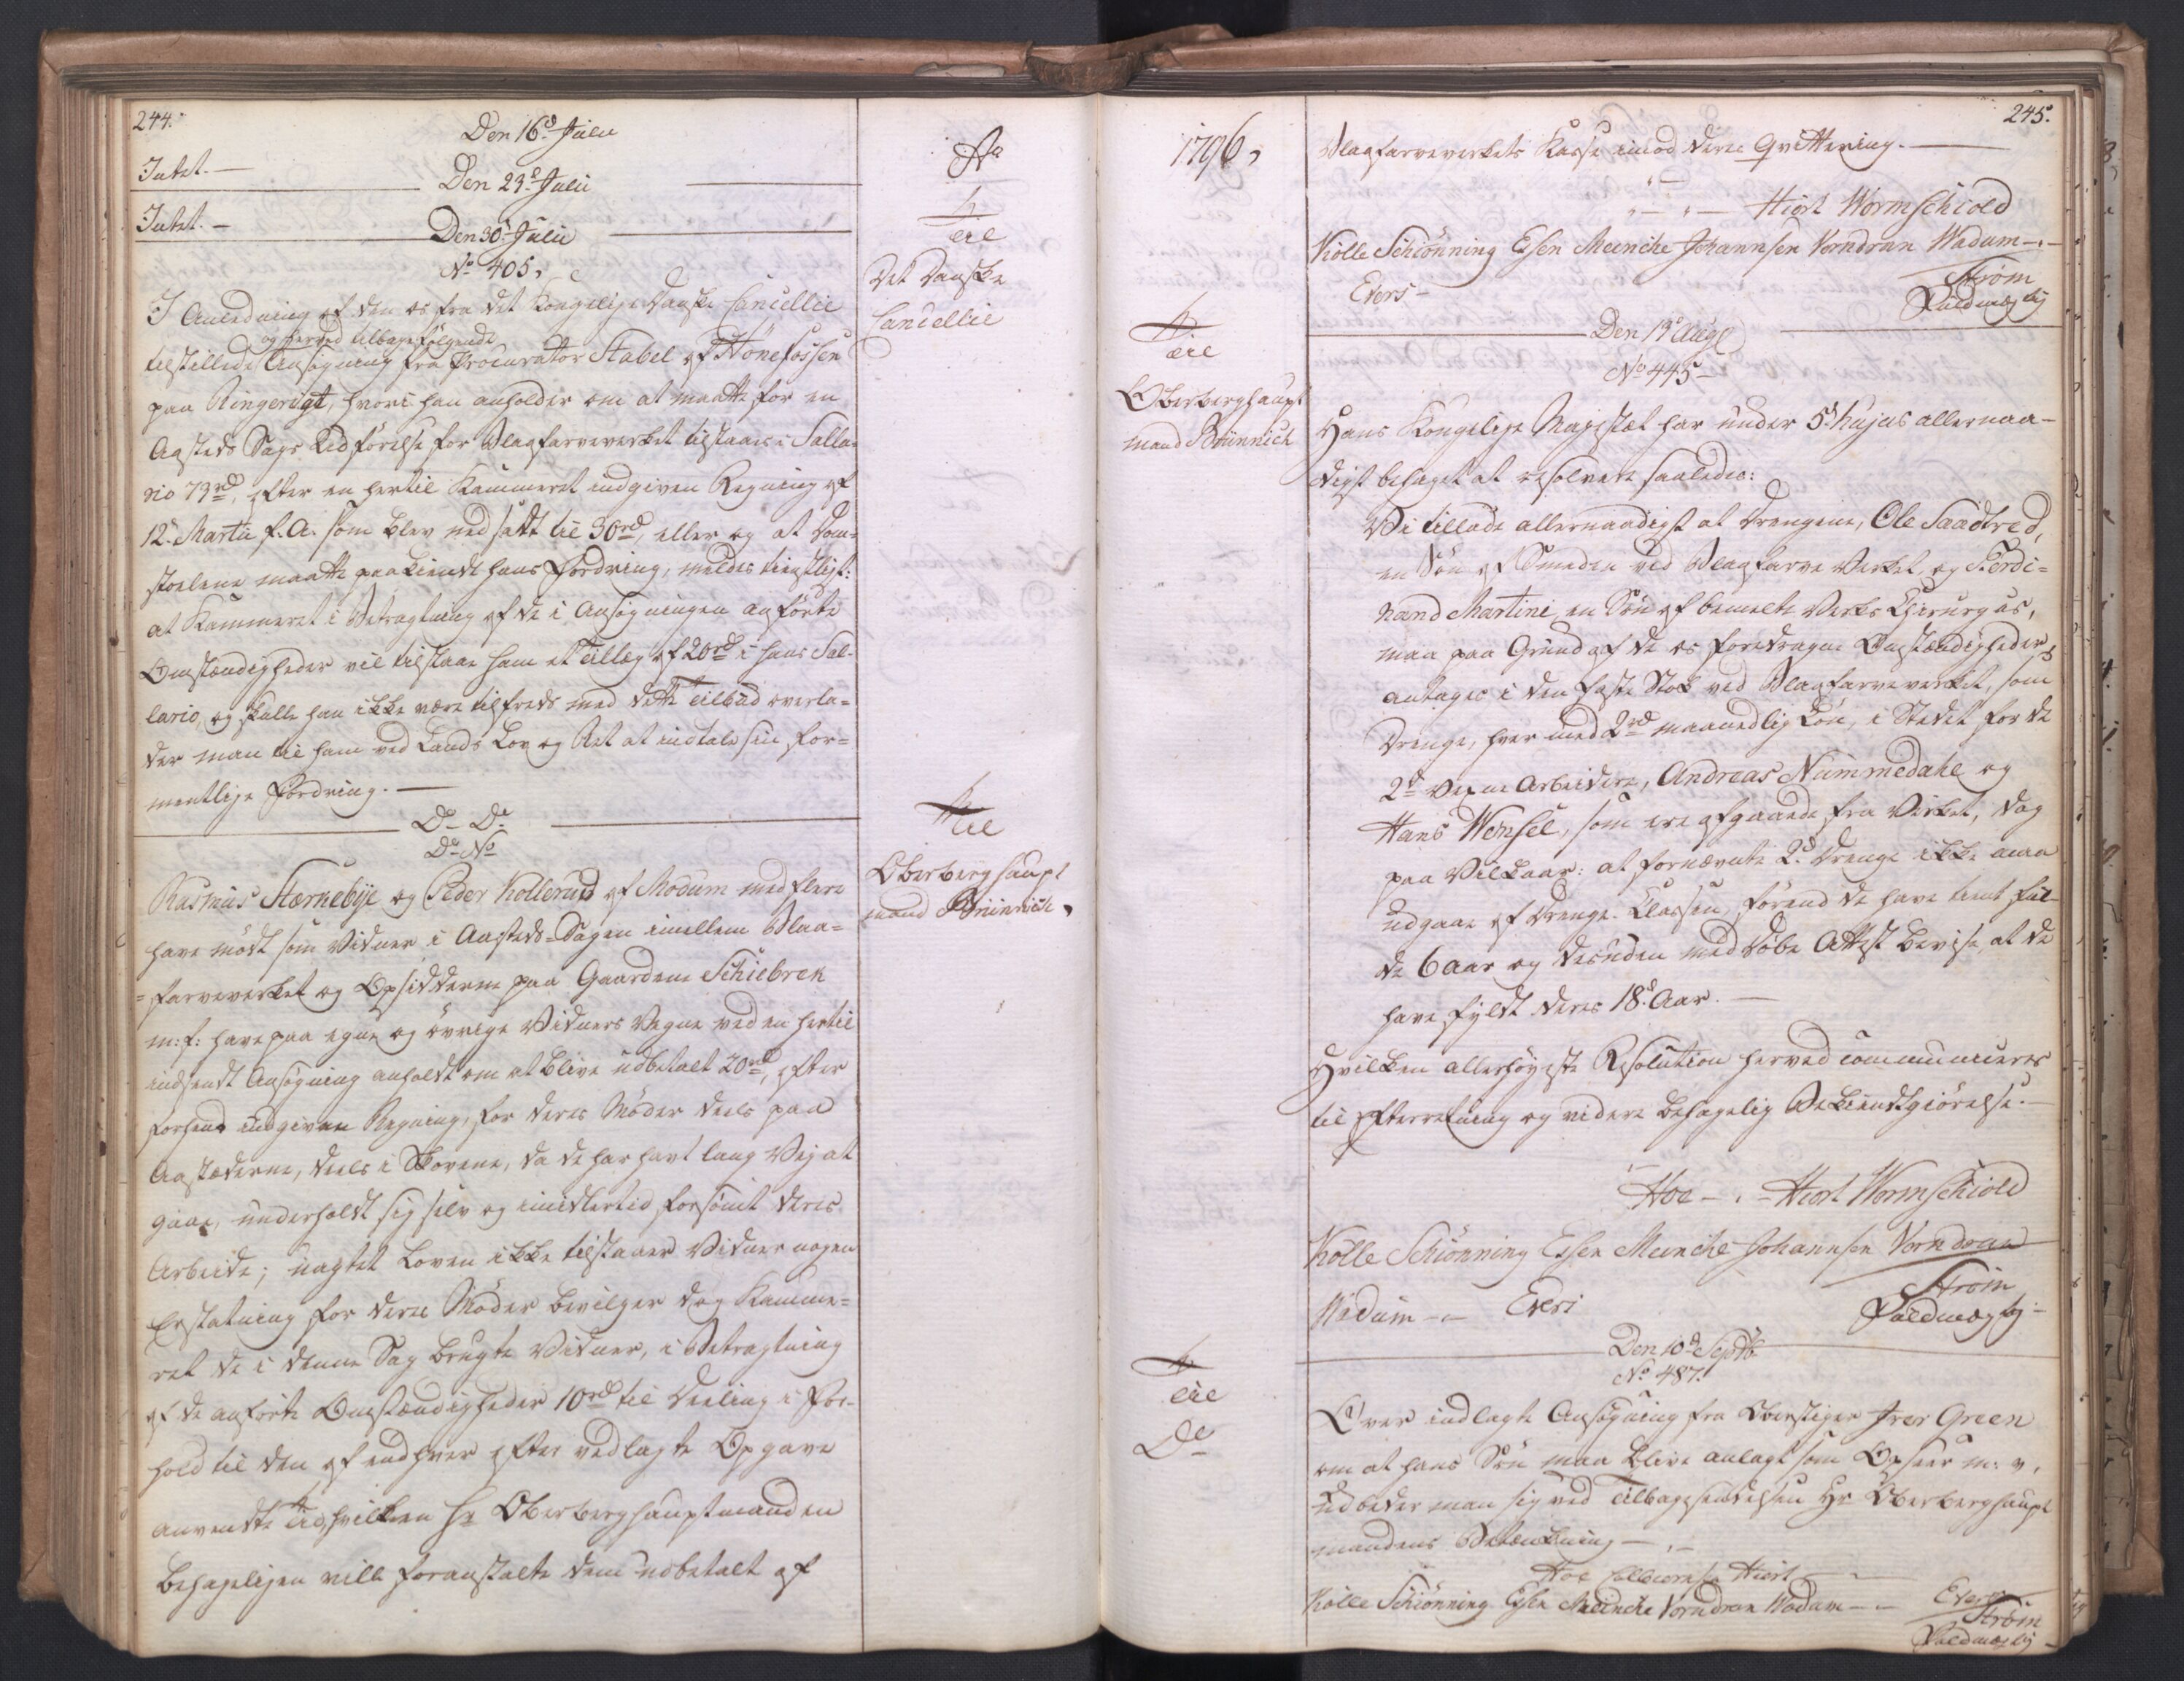 244.
Den 16d Julii
Intet. —
Den 23d Julii
Intet. —
Den 30d Julii
No 405,
I Anledning af den os fra det Kongelige Danske Cancellie
og herved tilbagefølgende
tilstillede Ansøgning fra Procurator Stabel af Hönefossen
paa Ringerigt, hvori han anholder om at maatte for en
Aasteds Sags Udførelse for Blaafarveverket tilstaaes i Salla-
rio 73rd, efter en hertil Kammeret indgiven Regning af
12. Martii f. A. som blev nedsatt til 30rd, eller og at Dom-
stolene maatte paakiende hans Fordring, meldes tienstligst:
at Kammeret i Betragtning af de i Ansøgningen anførte
Omstændigheder vil tilstaae ham et Tillæg af 20rd i hans Sal-
lario, og skulle han ikke være tilfreds med dette Tilbud overla-
der man til ham ved Lands Lov og Ret at indtale sin for-
mentlige Fordring. —
Do Do
Do No
Rasmus Stærnebye og Peder Kollerud af Modum med flere
have mødt som Vidner i Aasteds-Sagen imellem Blaa-
farveverket og Opsidderne paa Gaardene Schiebrek
m: f: have paa egne og övrige Vidners Vegne ved en hertil
indsendt Ansøgning anholdt om at blive udbetalt 20rd, efter
forhend indgiven Regning, for deres Møder deels paa
Aastæderne, deels i Skovene, da de har havt lang Vej at
gaae, underholdt sig selv og imidlertid forsømt deres
Arbeide; uagtet Loven ikke tilstaaer Vidner nogen
Erstatning for deres Møder bevilger dog Kamme-
ret de i denne Sag brugte Vidner, i Betragtning
af de anførte Omstændigheder 10rd til Deeling i For-
hold til den af enhver efter vedlagte Opgave
anvendte Tid, hvilken Hr Oberberghauptmanden
behageligen ville foranstalte dem udbetalt af
Ao
Til
Det Danske
Cancellie
Til
Oberberghaupt
mand Brünnich,
1796,
Til
Oberberghaupt
mand Brünnich
Til
Do
245.
Blaafarveverkets Kasse imod deres Qvittering. —
Hiort Wormschiold
Kölle Schiönning Essen Meincke Johannsen Vorndran Wadum
Evers
Strøm
Fuldmægtig
Den 13d Aug
No 445
Hans Kongelige Majestæt har under 5d hujus allernaa-
digst behaget at resolvere saaledes:
Vi tillade allernaadigst at Drengene, Ole Saadtred,
en Søn af Smeden ved Blaafarve Verket, og Ferdi-
nand Martini, en Søn af bemelte Verks Chirurgus,
maa paa Grund af de os foredragne Omstændigheder,
antages i den faste Stok ved Blaafarveverket, som
Drenge, hver med 2rd maanedlig Løn, i Stedet for de
2de Arbeidere, Andreas Nummedahl og
Hans Wensel, som ere afgaaede fra Verket, dog
paa Vilkaar: at fornævnte 2de Drenge ikke maa
udgaae af Drenge-Classen, førend de have tient ful-
de 6 Aar og desuden med Døbe Attest bevise, at de
have fyldt deres 18d Aar. —
Hvilken allerhøyeste Resolution herved communiceres
til Efterretning og videre behagelig Bekiendtgiørelse. —
Hoe Hiort Wormschiold
Kölle Schiönning Essen Meincke Johannsen Vorndran
Wadum Evers
Strøm
Fuldmægtig
Den 10d Septb
No 487.
Over indlagte Ansøgning fra Oberstiger Iver Green
om at hans Søn maa blive antagt som Opseer m: v,
udbeder man sig ved Tilbagesendelsen Hr Oberberghaupt
mandens Betænkning —
Hoe Hiort
Kölle Schiönning Essen Meincke Vorndran Wadum
Evers
Strøm
Fuldmægtig